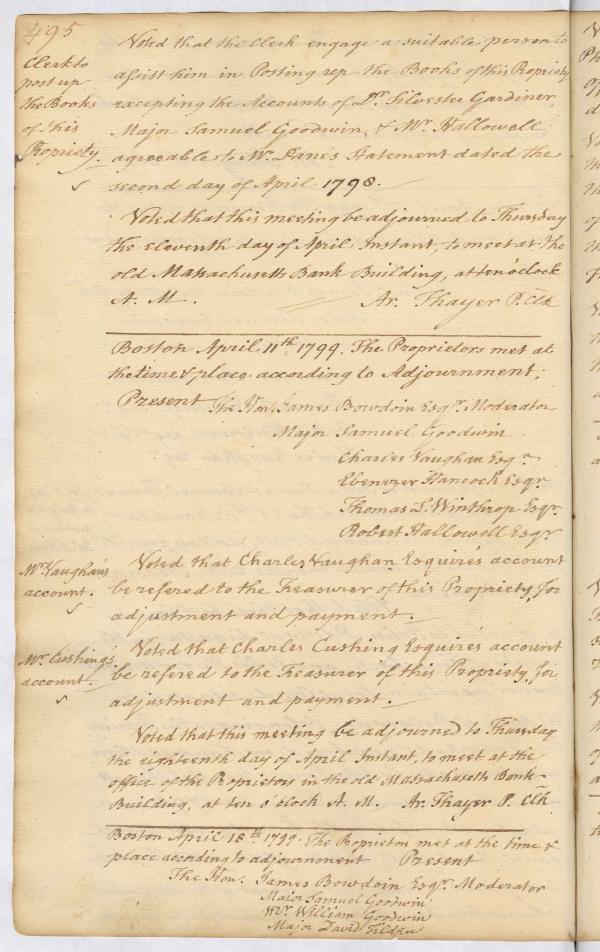 495
Clerk to
post up
the Books
of this
Propriety.
Voted that the Clerk engage a suitable person to
assist him in Posting up the Books of this Propriety
excepting the Accounts of Dr. Silvester Gardiner,
Major Samuel Goodwin, & Mr. Hallowell
agreeable to Mr. Lane's Statement dated the
second day of April 1798.
Voted that this meeting be adjourned to Thursday
the eleventh day of April Instant, to meet at the
old Massachusetts Bank Building, at ten o'clock
A. M. Ar. Thayer P. Clk
Boston April 11th. 1799. The Proprietors met at
the time & place according to Adjournment;
Present The Hon. James Bowdoin Esqr. Moderator
Major Samuel Goodwin
Charles Vaughan Esqr
Ebenezer Hancock Esqr
Thomas L. Winthrop Esqr.
Robert Hallowell Esqr
Mr. Vaughan's
account.
Voted that Charles Vaughan Esquire's account
be refered to the Treasurer of this Propriety, for
adjustment and payment.
Mr. Cushing's
account.
Voted that Charles Cushing Esquire's account
be refered to the Treasurer of this Propriety, for
adjustment and payment.
Voted that this meeting be adjourned to Thursday
the eighteenth day of April Instant, to meet at the
office of the Proprietors in the old Massachusetts Bank
Building, at ten o'clock A. M. Ar. Thayer P. Clk
Boston April 18th. 1799. The Proprietors met at the time &
place according to adjournment Present
The Hon. James Bowdoin Esqr. Moderator
Major Samuel Goodwin
Mr. William Goodwin
Major David Tilden